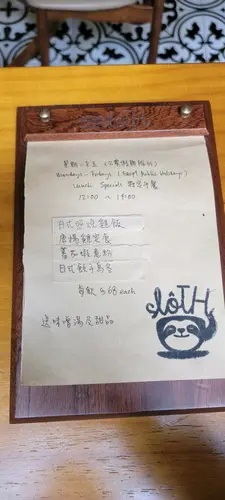 星期一至五 (公眾假期除外)
Mondays - Fridays (Except Public Holidays)
Lunch Specials 特定午餐
12:00 ~ 14:00
日式照燒雞飯
唐揚雞定食
日式餃子烏冬
每款 $68 each
送味噌湯及甜品